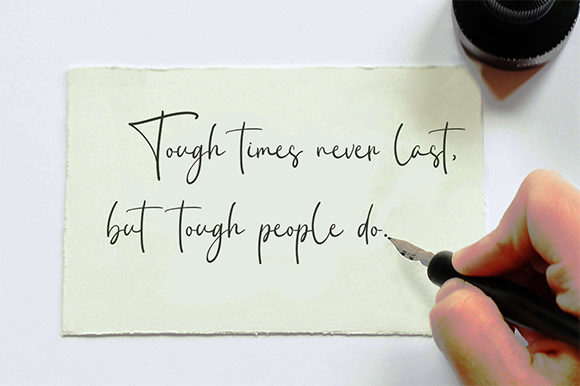 Tough times never last,
but tough people do.